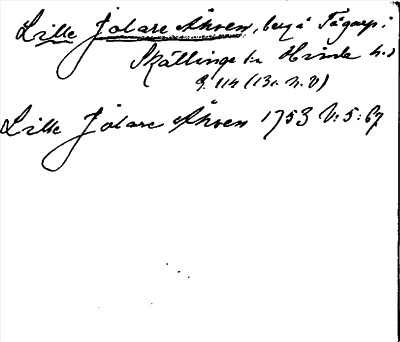 Lille Jolare Åhsen, berg å Tågarp i
Skällinge sn Himle h.d
G. 114 (13. N. V)
Lille Jolare Åhsen 1753 V:5:67